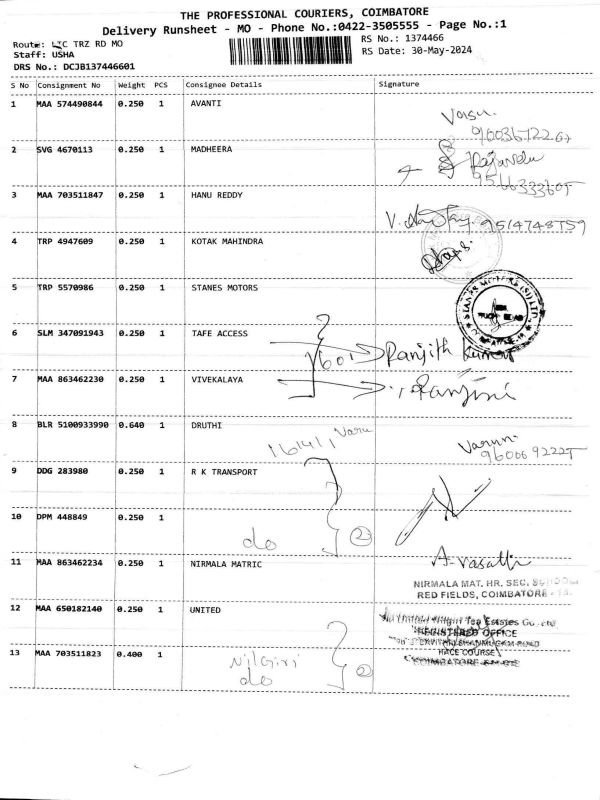 THE PROFESSIONAL COURIERS, COIMBATORE
Delivery Runsheet - MO - Phone No.:0422-3505555 - Page No.:1
Route: LIC TRZ RD MO
RS No.: 1374466
Staff: USHA
RS Date: 30-May-2024
DRS No.: DCJB137446601
S No Consignment No Weight PCS Consignee Details Signature
1 MAA 574490844 0.250 1 AVANTI
Varun
2 SVG 4670113 0.250 1 MADHEERA
3 MAA 703511847 0.250 1 HANU REDDY
V. 9514748759
4 TRP 4947609 0.250 1 KOTAK MAHINDRA
5 TRP 5570986 0.250 1 STANES MOTORS
STANES MOTORS (SI) LTD.
6 SLM 347091943 0.250 1 TAFE ACCESS
Ranjith Kumar
7 MAA 863462230 0.250 1 VIVEKALAYA
Ranjini
8 BLR 5100933990 0.640 1 DRUTHI
Varun
9600692225
9 DDG 283980 0.250 1 R K TRANSPORT
10 DPM 448849 0.250 1
do 2
11 MAA 863462234 0.250 1 NIRMALA MATRIC
NIRMALA MAT. HR. SEC. SCHOOL
RED FIELDS, COIMBATORE
12 MAA 650182140 0.250 1 UNITED
Tea Estates Co.
REGISTERED OFFICE
13 MAA 703511823 0.400 1
Nilgiri
do 2
RACE COURSE